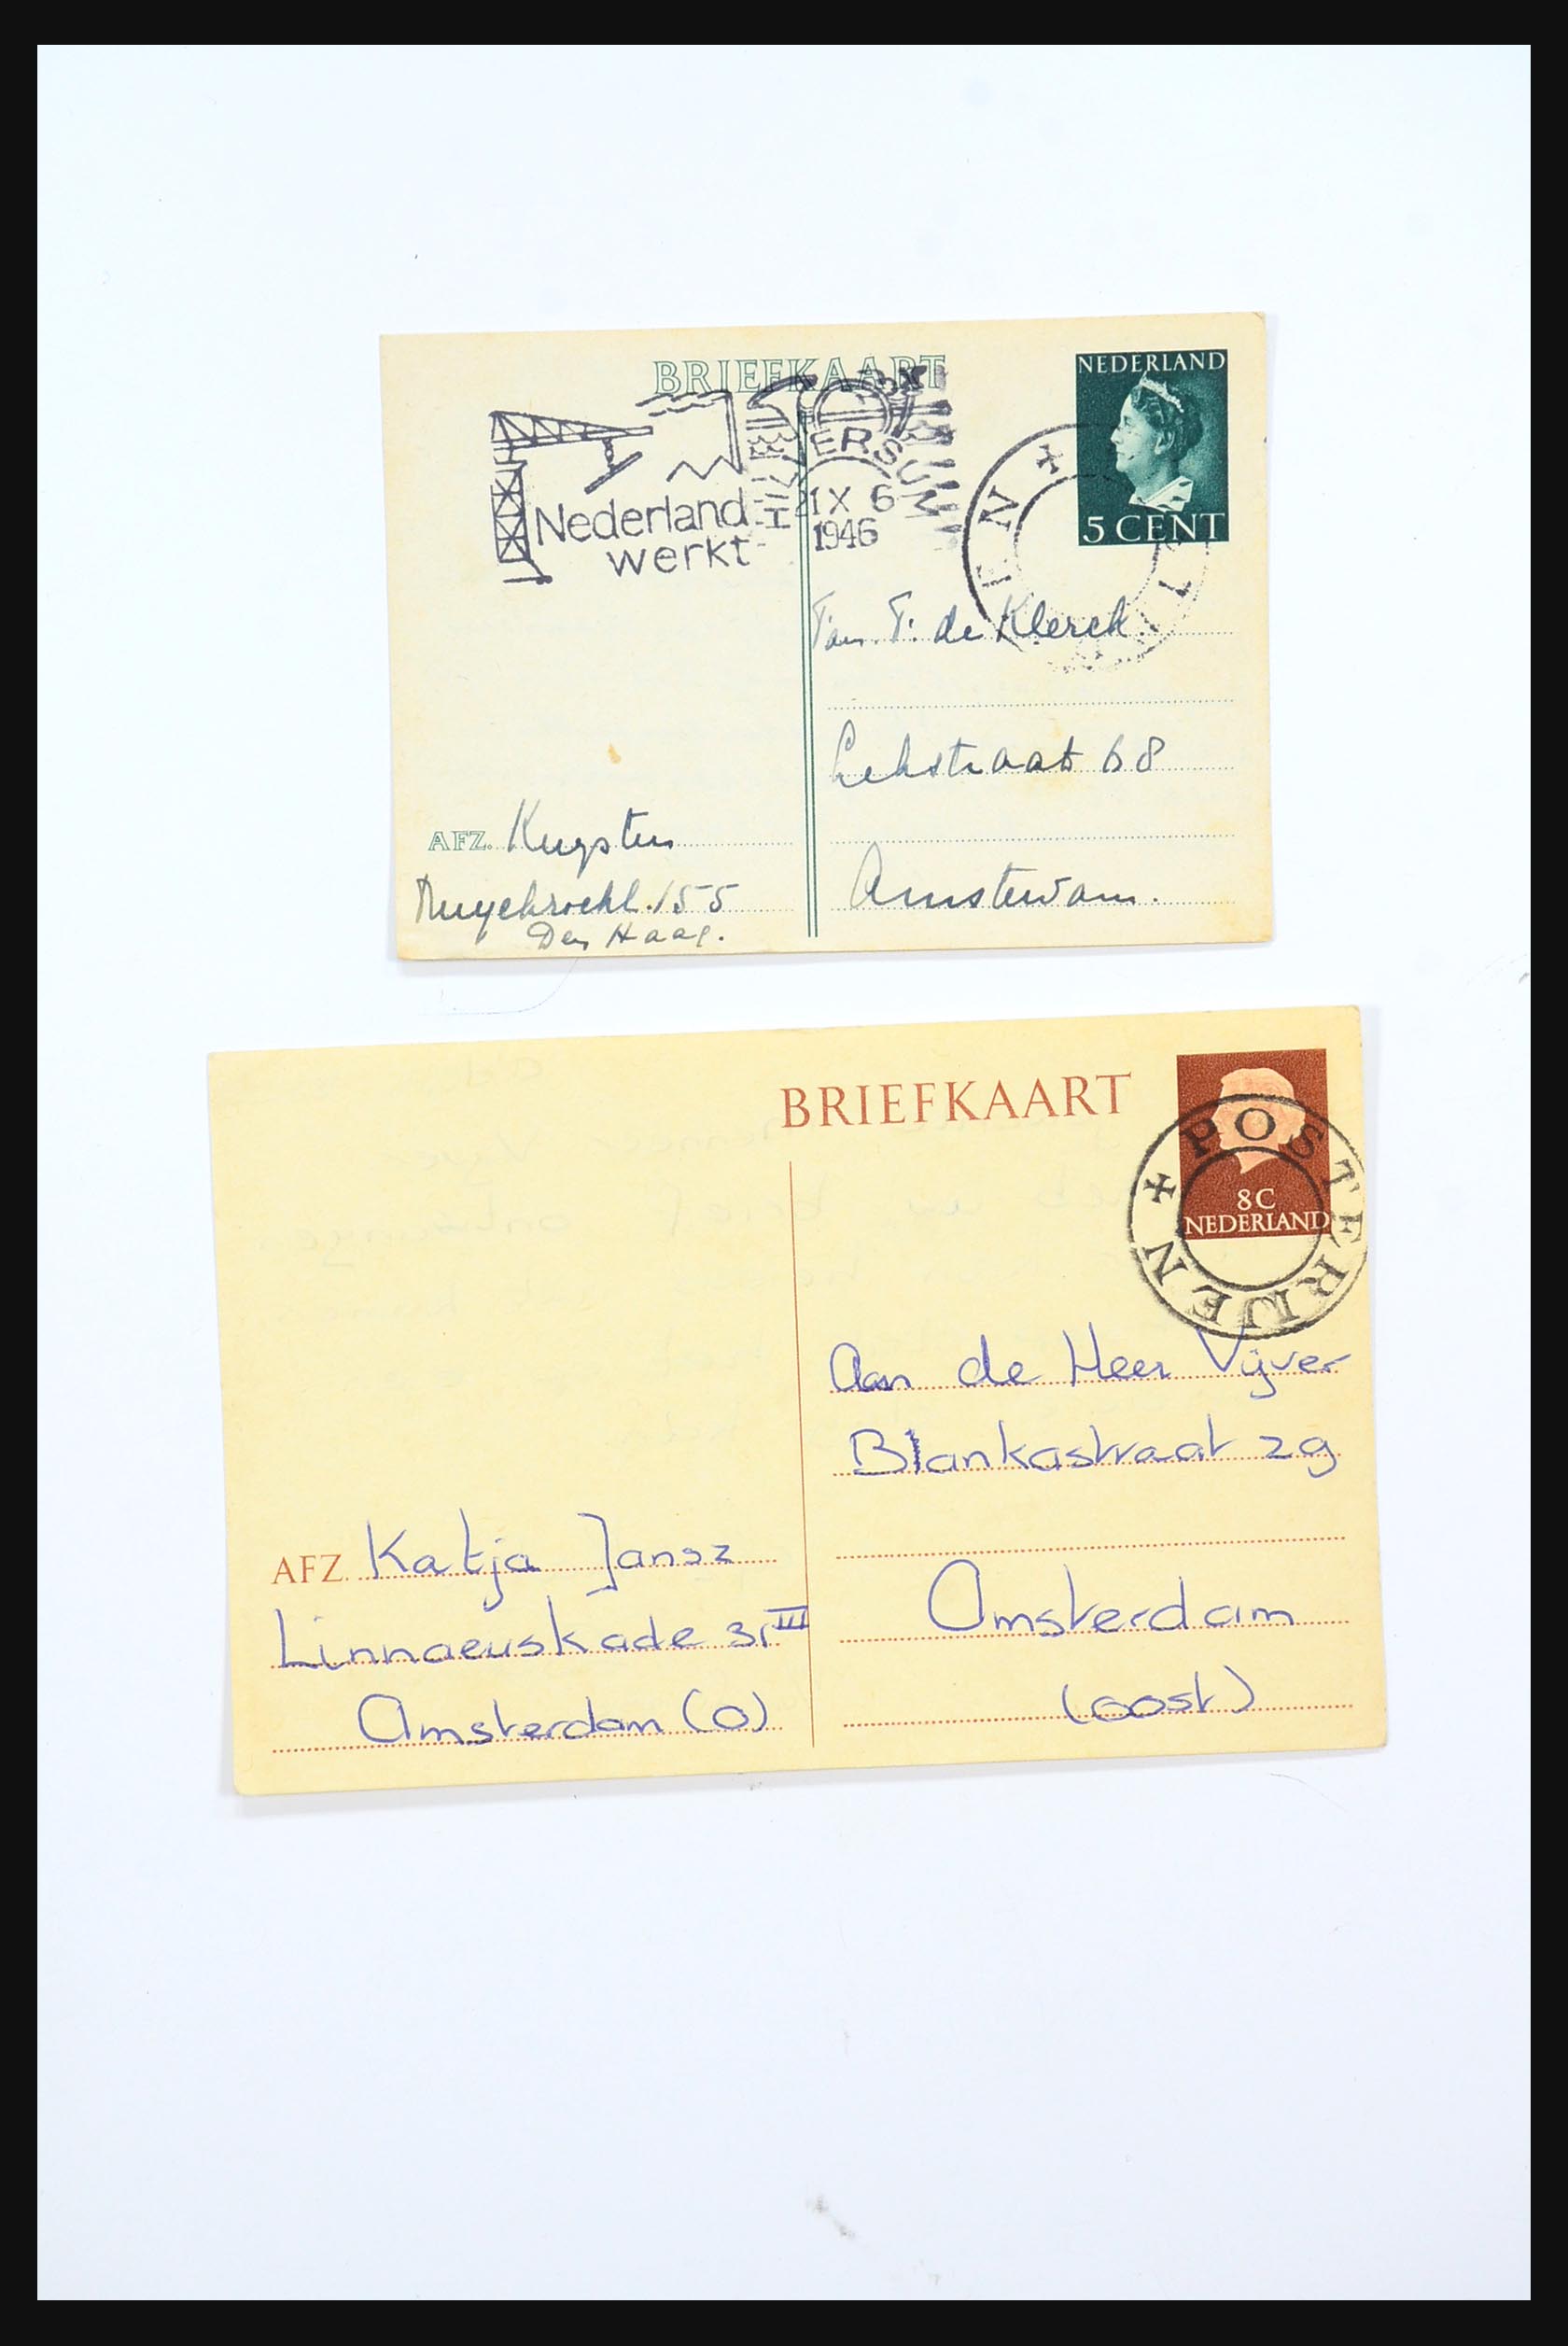 BRIEFKAART
NEDERLAND
5 CENT
Nederland
werkt
HILVERSUM
21 X 6
1946
EN
Fam. T. de Klerck
Lekstraat 68
Amsterdam.
AFZ.
155
Den Haag.
BRIEFKAART
8 C
NEDERLAND
POSTERIJEN
Aan de Heer Vijver
Blankastraat 29
Amsterdam
(oost)
AFZ. Katja Jansz
Linnaeuskade 31 III
Amsterdam (O)